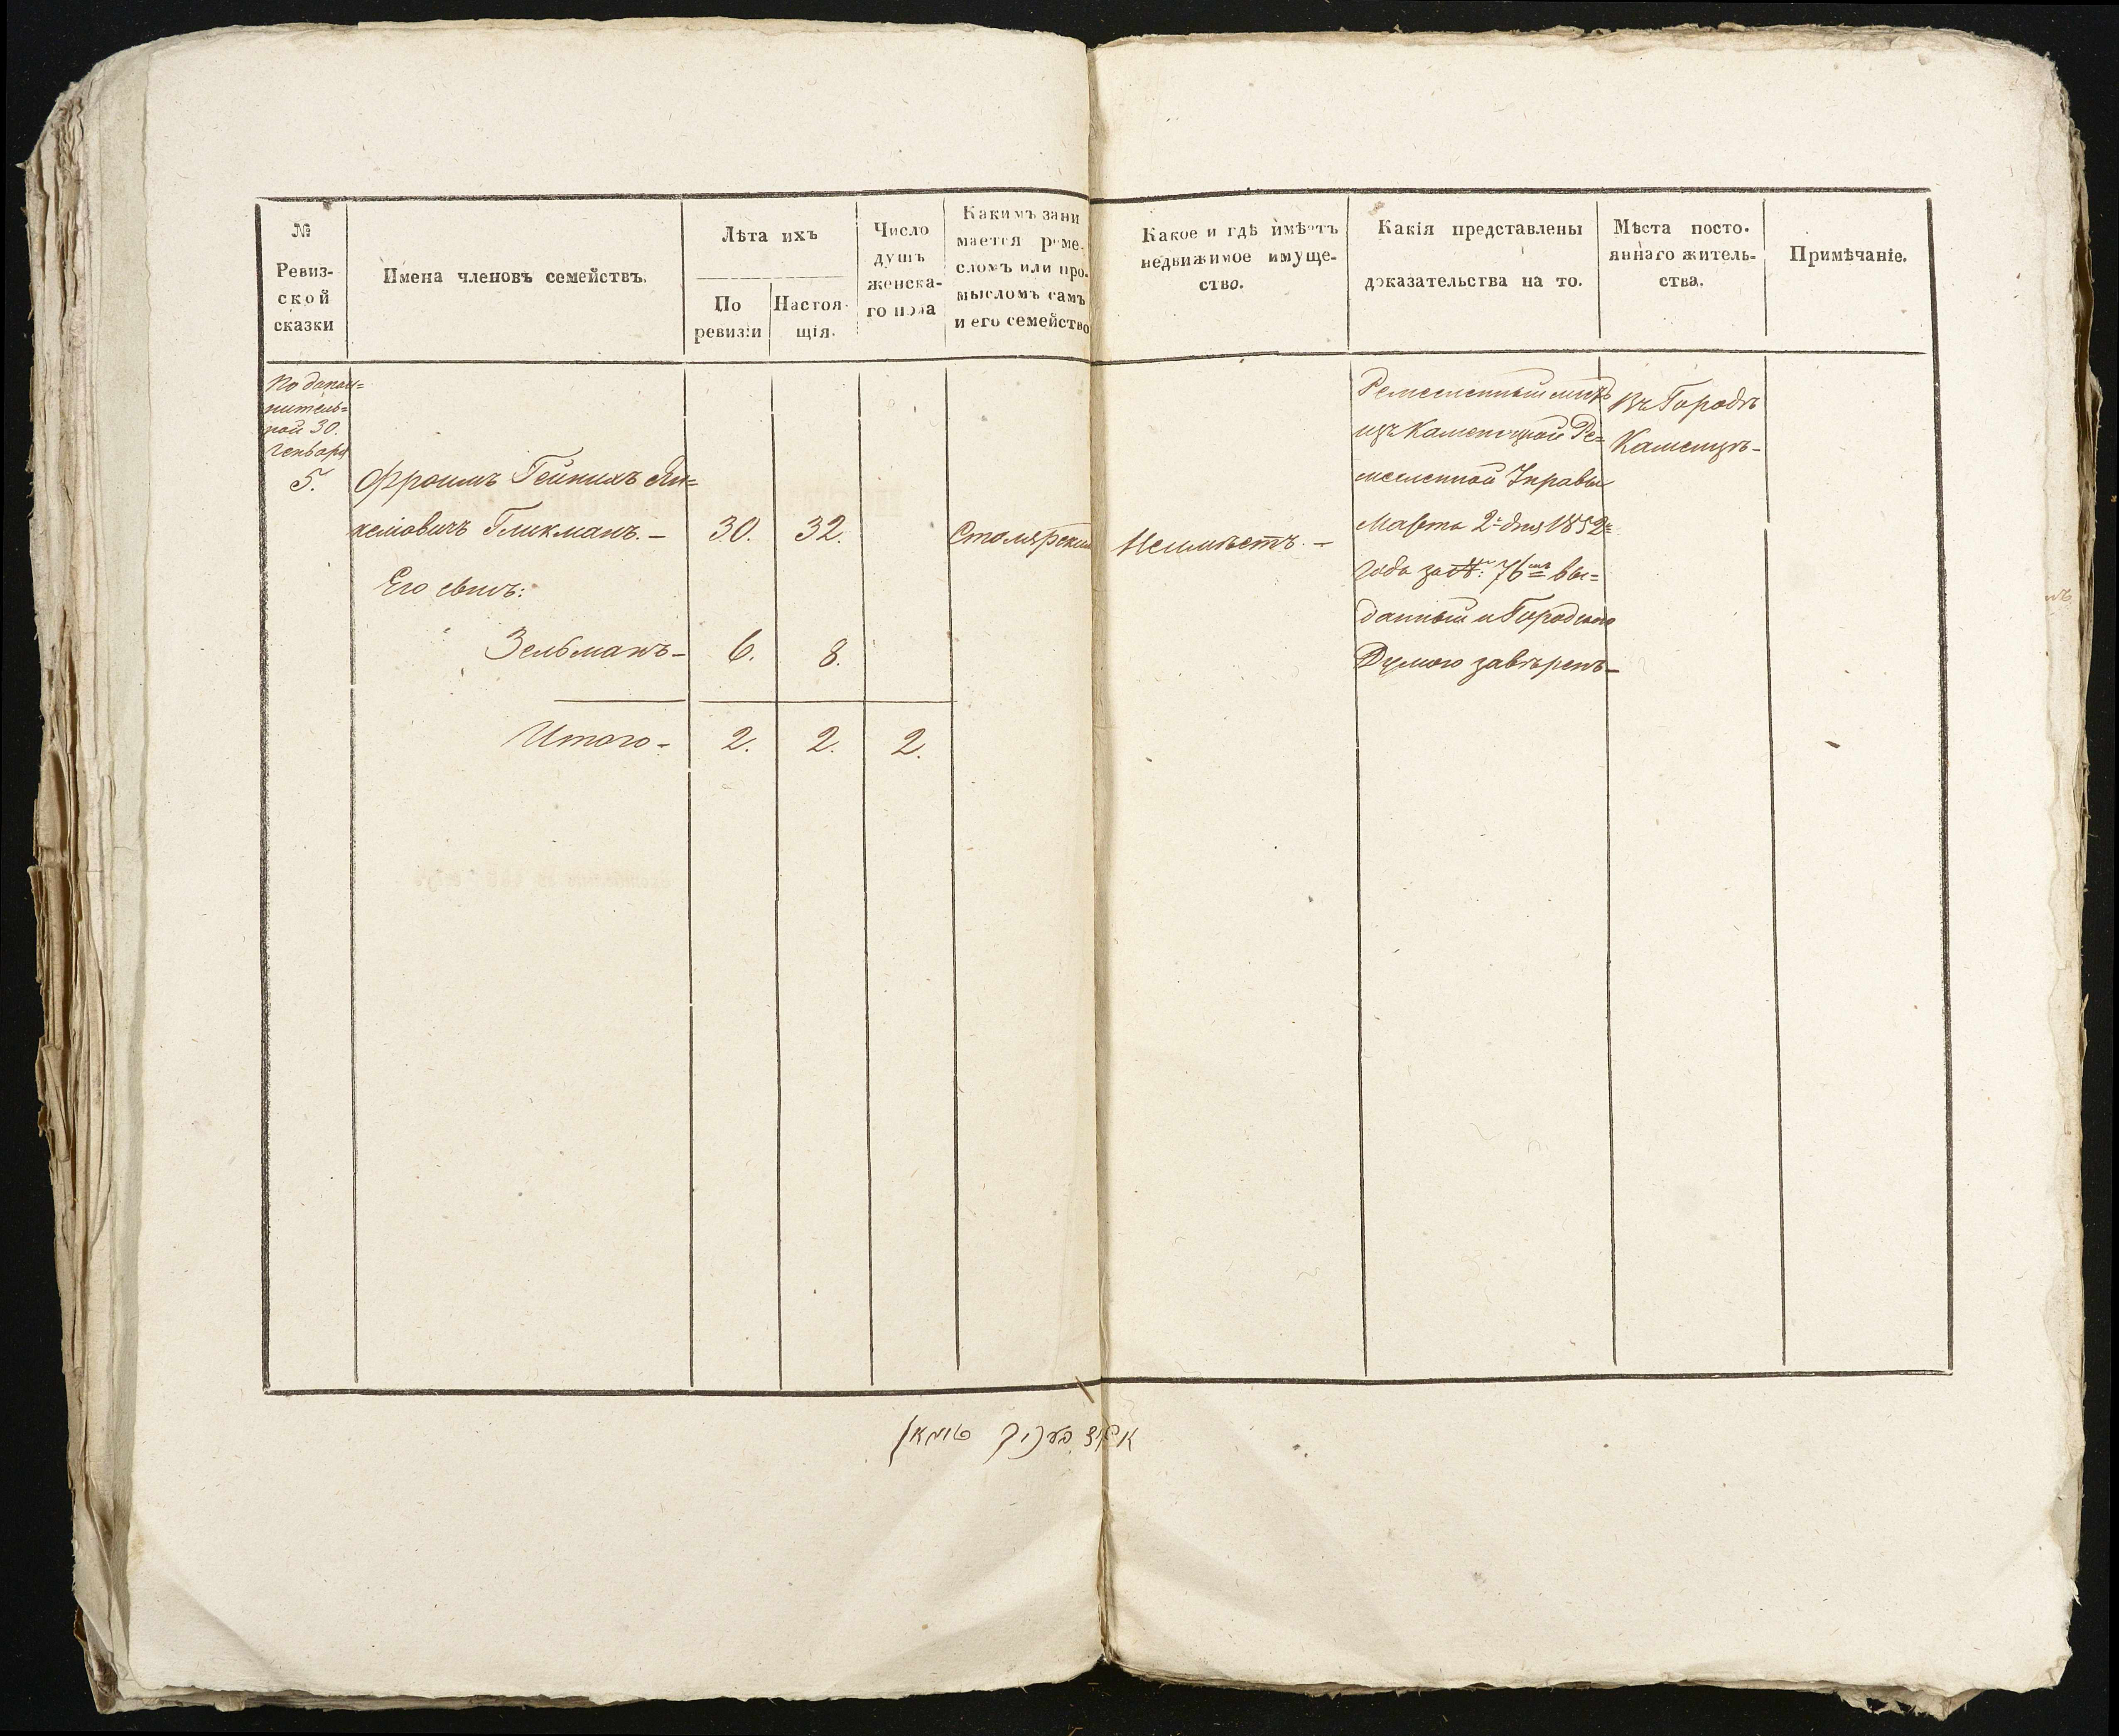 №
Ревиз-
ской
сказки
Имена членовъ семействъ.
Лѣта ихъ
По
ревизіи
Настоя-
щія.
Число
душъ
женска-
го пола
Какимъ зани
мается реме-
сломъ или про-
мысломъ самъ
и его семейство
Какое и гдѣ имѣетъ
недвижимое имуще-
ство.
Какія представлены
доказательства на то.
Мѣста посто-
яннаго житель-
ства.
Примѣчаніе.
По допол=
нитель=
ной 30.
Генваря
5.
Фроимъ Гейнихъ Ян=
келіовичъ Гликманъ. – 30. 32.
Его сынъ:
Зельманъ – 6. 8.
Итого – 2. 2. 2.
Столярскимъ
Неимѣетъ. –
Ремесленный
изъ Каменецкой Ре=
месленной Управы
Марта 2 дня 1852
года за №: 76 вы=
данный и Городскою
Думою завѣренъ –
Въ Городѣ
Каменцѣ –